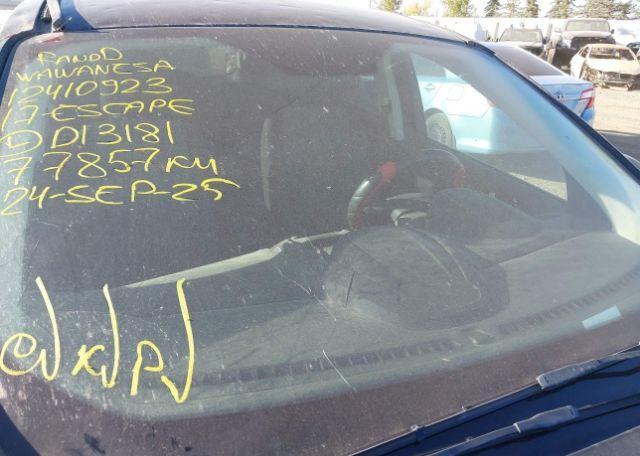 RANDD
WAWANESA
12410923
17-ESCAPE
DD13181
77857KM
24-SEP-25
C√ K√ P√